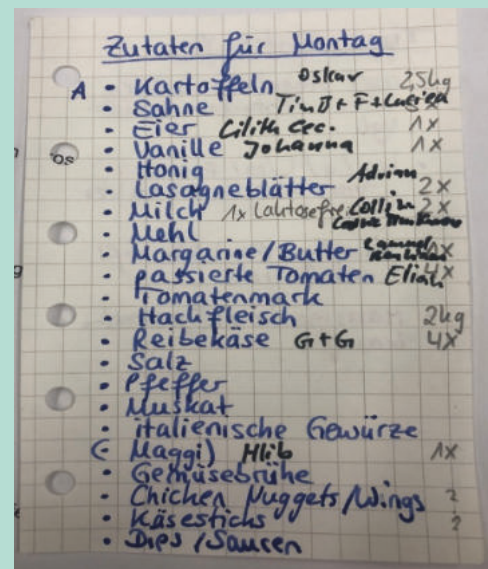 Zutaten für Montag
A • Kartoffeln Oskar 2,5kg
• Sahne Tim J + F +
• Eier Lilith Cec. 1x
• Vanille Johanna 1x
os • Honig
• Lasagneblätter Adrian 2x
• Milch 1x Laktosefrei Collin 2x
• Mehl
• Margarine/Butter 1x
• passierte Tomaten Eliah 4x
• Tomatenmark
• Hackfleisch 2kg
• Reibekäse G+G 4x
• Salz
• Pfeffer
• Muskat
• italienische Gewürze
(• Maggi) Hlib 1x
• Gemüsebrühe
• Chicken Nuggets/Wings ?
• Käsesticks ?
• Dips/Saucen